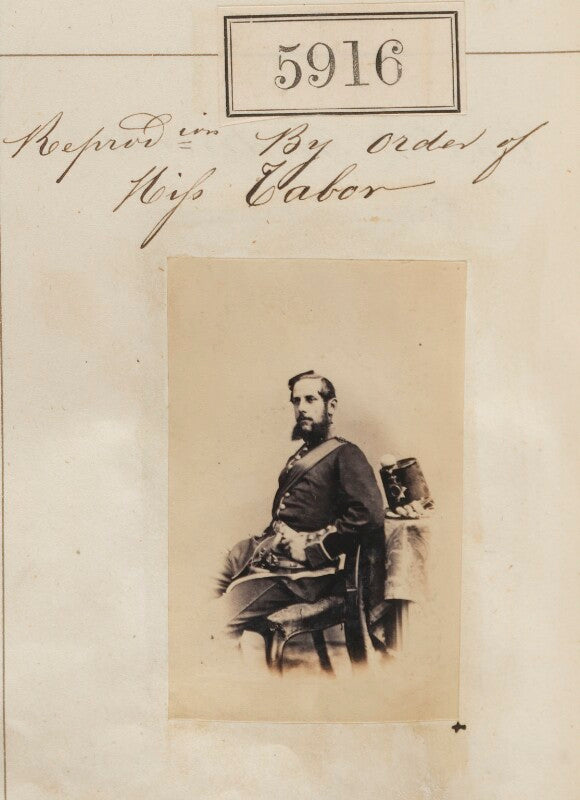 5916
Reprodion By Order of
Miss Tabor